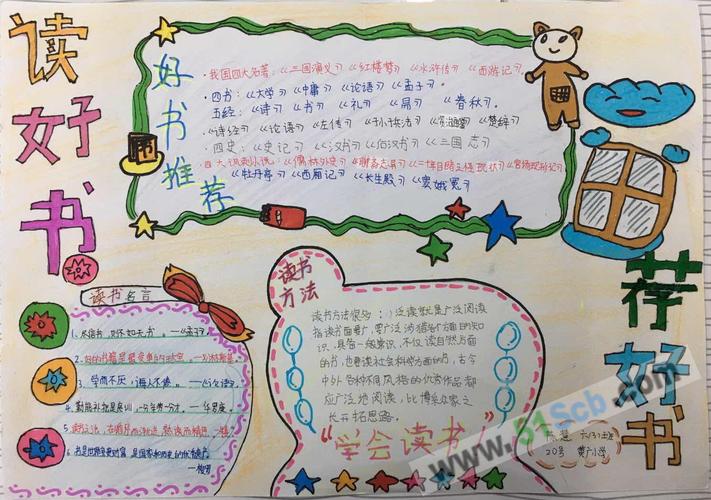 读好书
好书推荐
·我国四大名著：《三国演义》《红楼梦》《水浒传》《西游记》
·四书：《大学》《中庸》《论语》《孟子》.
五经：《诗》《书》《礼》《易》《春秋》.
《诗经》《论语》《左传》《孙子兵法》《楚辞》
·四史：《史记》《汉书》《后汉书》《三国志》
四大谴责小说：《儒林外史》《聊斋志异》《二十年目睹之怪现状》《官场现形记》
《牡丹亭》《西厢记》《长生殿》《窦娥冤》
书
荐好书
读书名言
1、尽信书，则不如无书。——《孟子》
3、学而不厌，诲人不倦。——《论语》
4、勤能补拙是良训，一分辛劳一分才。——华罗庚
读书方法
读书方法很多：1）泛读就是广泛阅读
指读书面要广，要广泛涉猎各方面的知
识，具备一般常识。不仅读自然方面
的书，也要读社会科学方面的书，古今
中外各种不同风格的优秀作品都
应广泛地阅读，以博采众家之
长开拓思路。
“学会读书”
陈慧 六(3)班
20号 黄广小学
www.51Scb.com